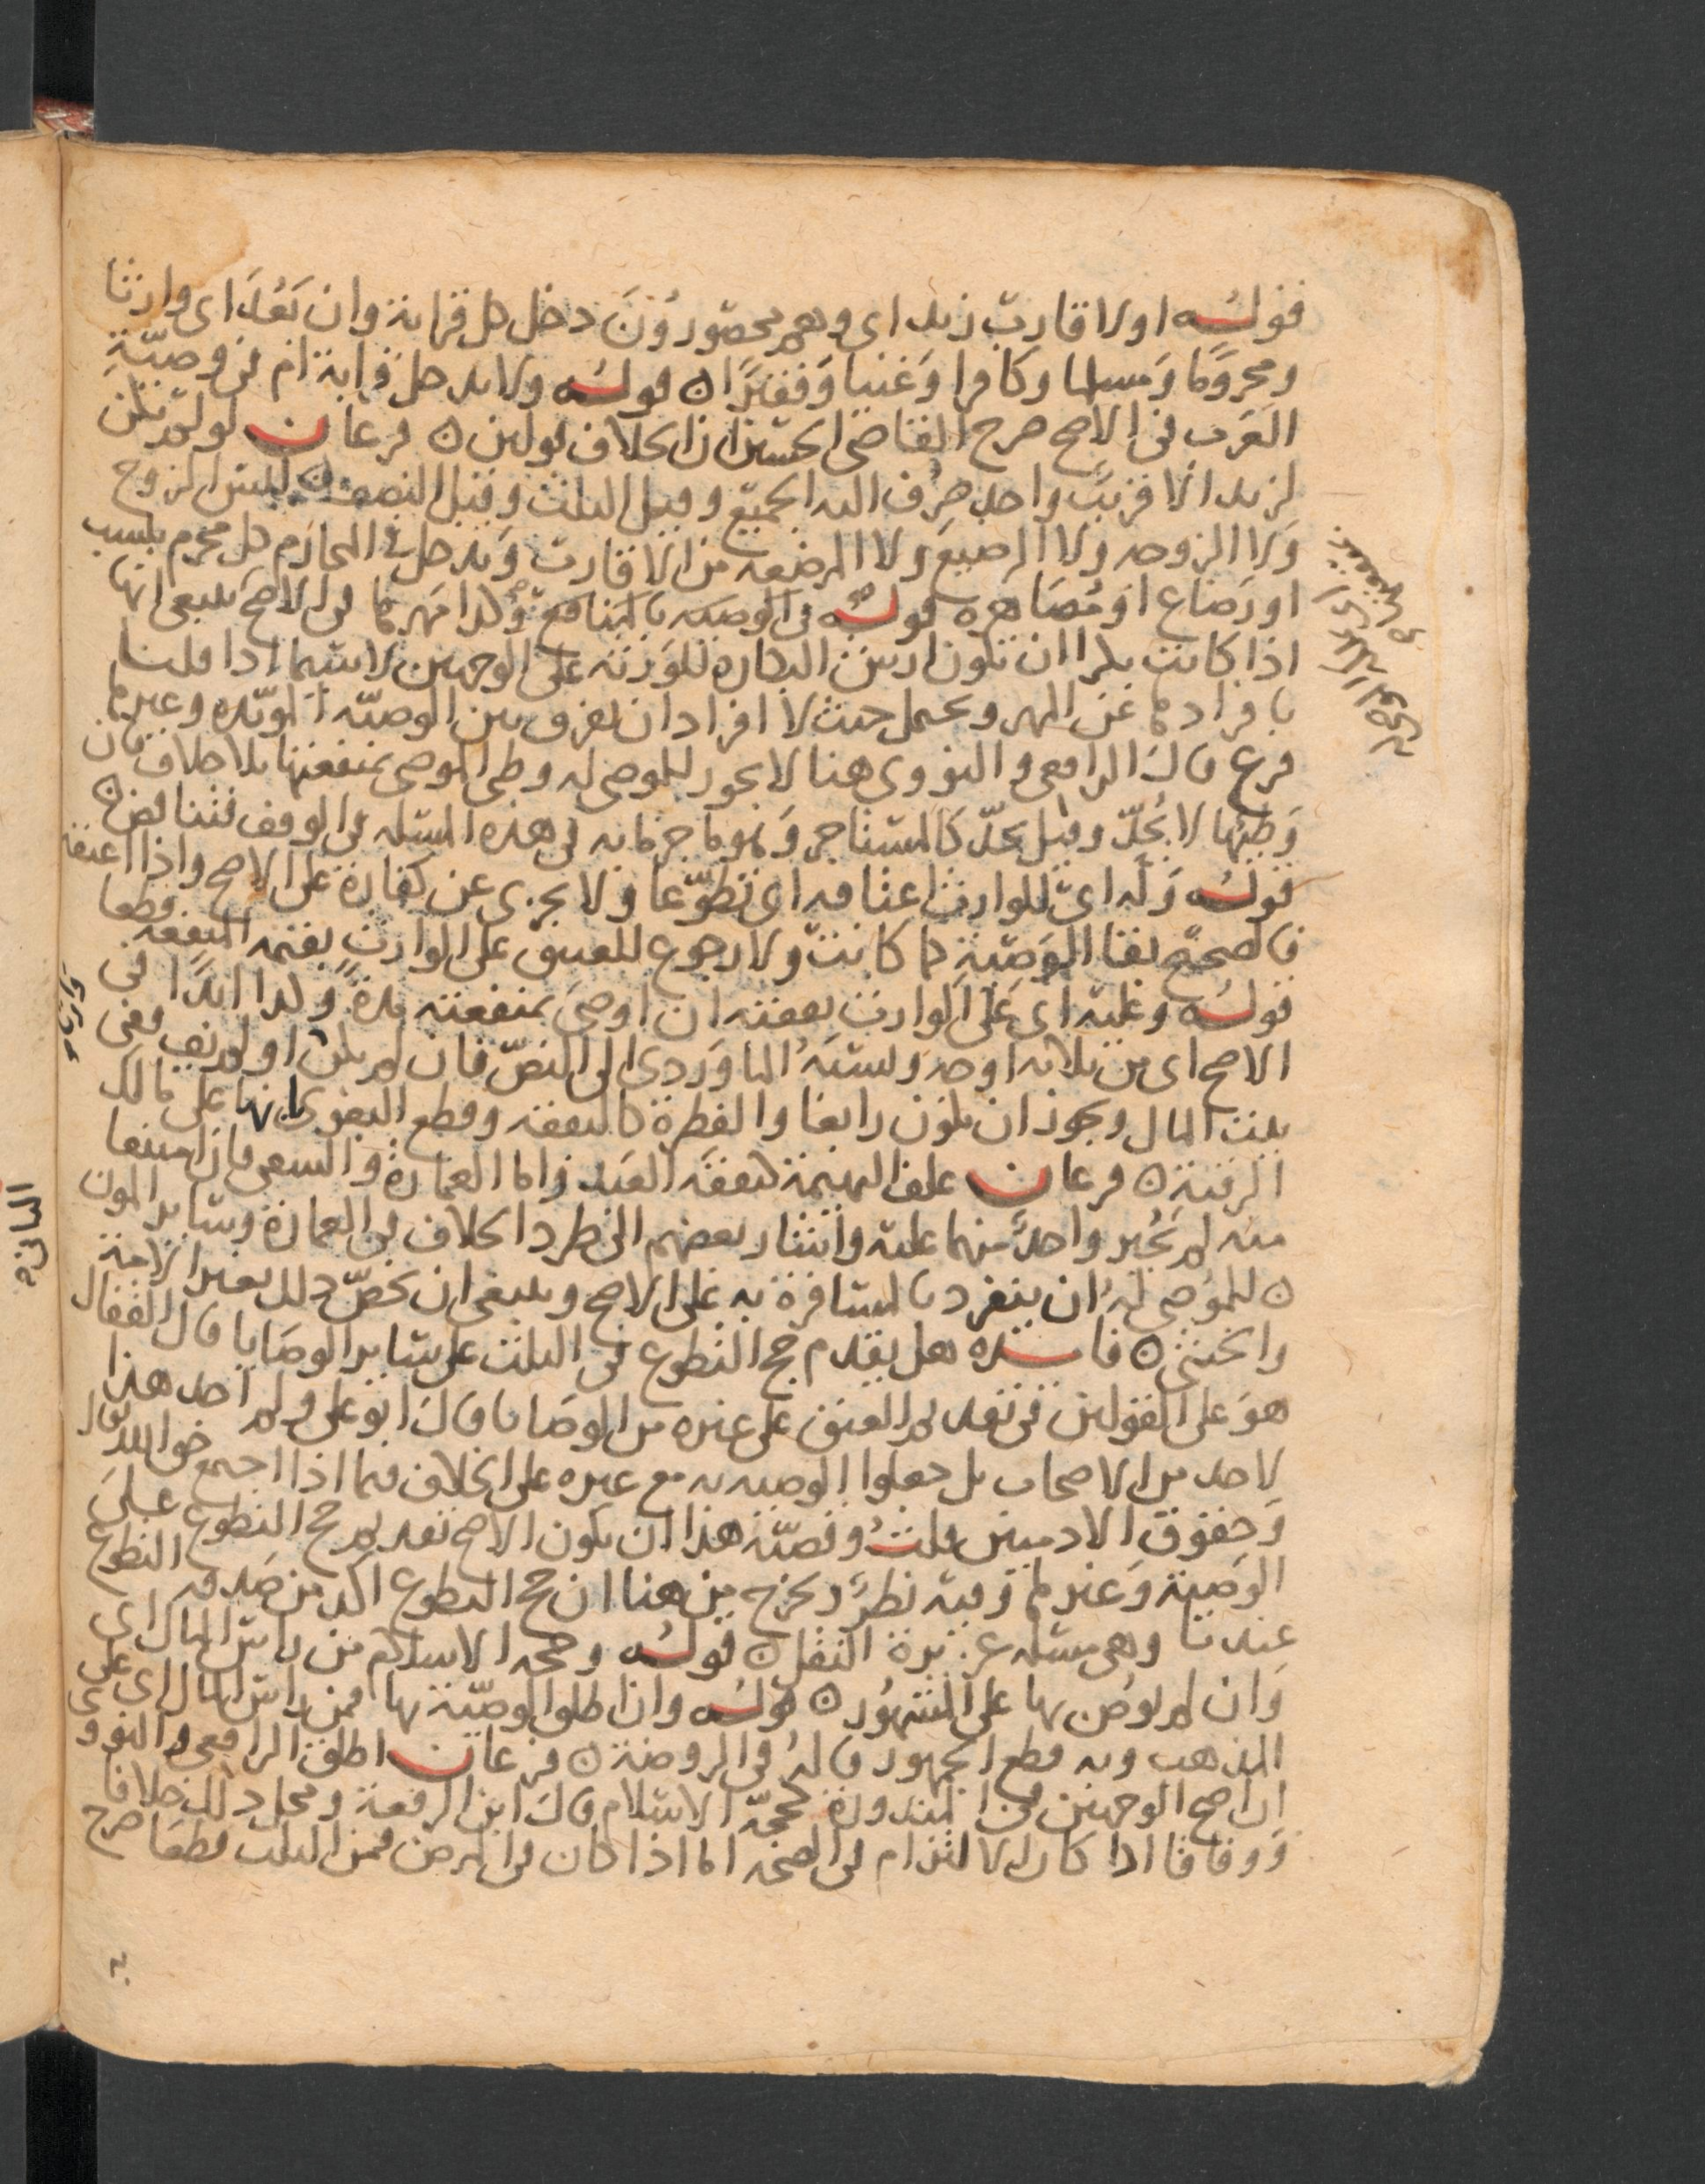 قوله او لاقارب زيد اى وهم محصورون دخل كل قرابة وان بعد اى وارثا
ومحروما ومسلما وكافرا وغنيا وفقيرا ن قوله ولا يدخل قرابة ام فى وصية
العرب فى الاصح صرح القاضى الحسين ان الخلاف قولين ن فرعان لو لم يكن
لزيد الا قريب واحد صرف اليه الجميع وقيل الثلث وقيل النصف ن ليس الزوج
ولا الزوجه ولا الرضيع ولا المرضعه من الاقارب ويدخل فى المحارم كل محرم بنسب
او رضاع او مصاهره قوله فى الوصيه بالمنافع وكذا مهرها فى الاصح ينبغى انها
اذا كانت بكرا ان يكون ارش البكاره للورثه على الوجهين لا سيما اذا قلنا
بافرادها عن المهر ويحتمل حيث لا افراد ان يفرق بين الوصيه المويده وغيرها
فرع قال الرافعى والنووى هنا لا يجوز للموصى له وطى الموصى بمنفعتها بلا خلاف فان
وطيها لا يحد وقيل يحد كالمستاجر وهو ما جزما به فى هذه المسله فى الوقف فتناقض ن
قوله وله اى للوارث اعتاقه اى تطوعا ولا يجزى عن كفارة على الاصح واذا اعتقه
فالصحيح بقا الوصية كما كانت ولا رجوع للعتيق على الوارث بقيمه المنفعه قطعا
قوله وعليه اى على الوارث نفقته ان اوصى بمنفعته مدة وكذا ابدا فى
الاصح اى من ثلاثه اوجه ونسبه الماوردى الى النص فان لم يكن او لم يف ففى
بيت المال ويجوز ان يكون رابعا والفطرة كالنفقه وقطع البغوى بانها على مالك
الرقبة ن فرعان علف البهيمة كنفقه العبد واما العمارة والسقى فان امتنعا
منه لم يجبر واحد منهما عليه واشار بعضهم الى طرد الخلاف فى العمارة وساير المون
ن للموصى له ان ينفرد بالمسافرة به على الاصح وينبغى ان يخص ذلك بغير الامة
والخنثى ن فايده هل يقدم حج التطوع فى الثلث على ساير الوصايا قال القفال
هو على القولين فى تقديم العتق على غيره من الوصايا قال ابو على ولم اجد هذا
لاحد من الاصحاب بل جعلوا الوصيه به مع غيره على الخلاف فيما اذا اجتمع حق الله تعالى
وحقوق الادميين قلت وقضية هذا ان يكون الاصح تقديم حج التطوع على
الوصية وغيرها وفيه نظر ويخرج من هنا ان حج التطوع اكد من صدقه التطوع
عندنا وهى مسله عزيزة النقل ن قوله وحجه الاسلام من راس المال اى
وان لم يوص بها على المشهور ن قوله وان اطلق الوصية بها فمن راس المال اى على
المذهب وبه قطع الجمهور قاله فى الروضة ن فرعان اطلق الرافعى والنووى
ان اصح الوجهين فى المنذورة كحجة الاسلام قال ابن الرفعة ومحل ذلك خلافا
ووفاقا اذا كان الالتزام فى الصحه اما اذا كان فى المرض فمن الثلث قطعا صرح
به